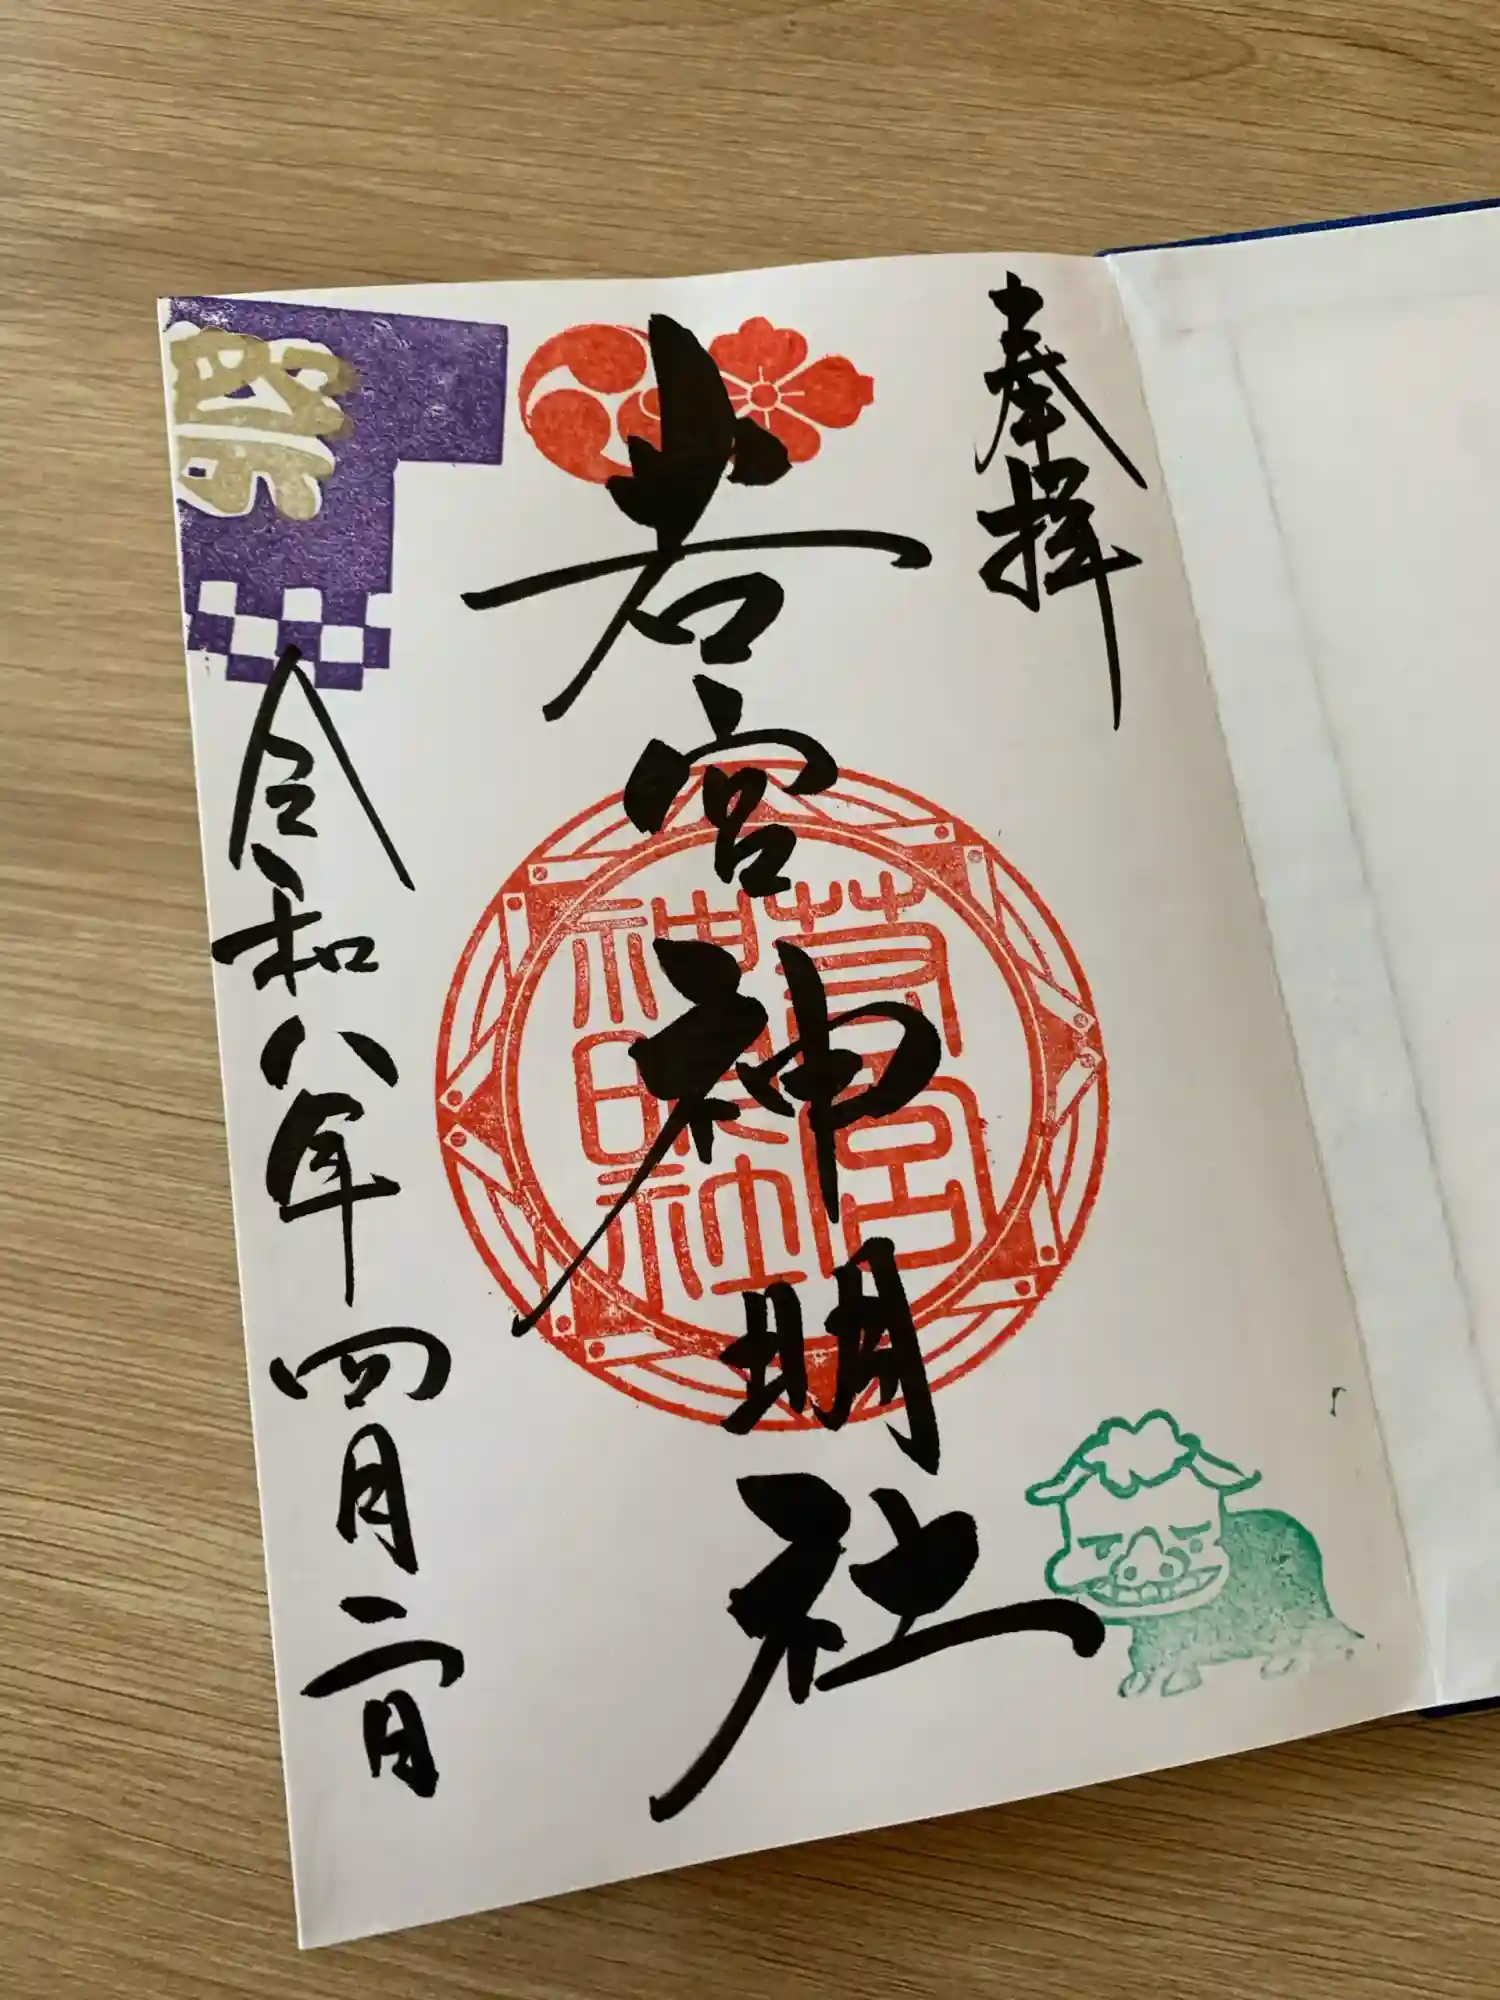 奉拝
若宮神明社
若宮
神明社
祭
令和八年四月二日